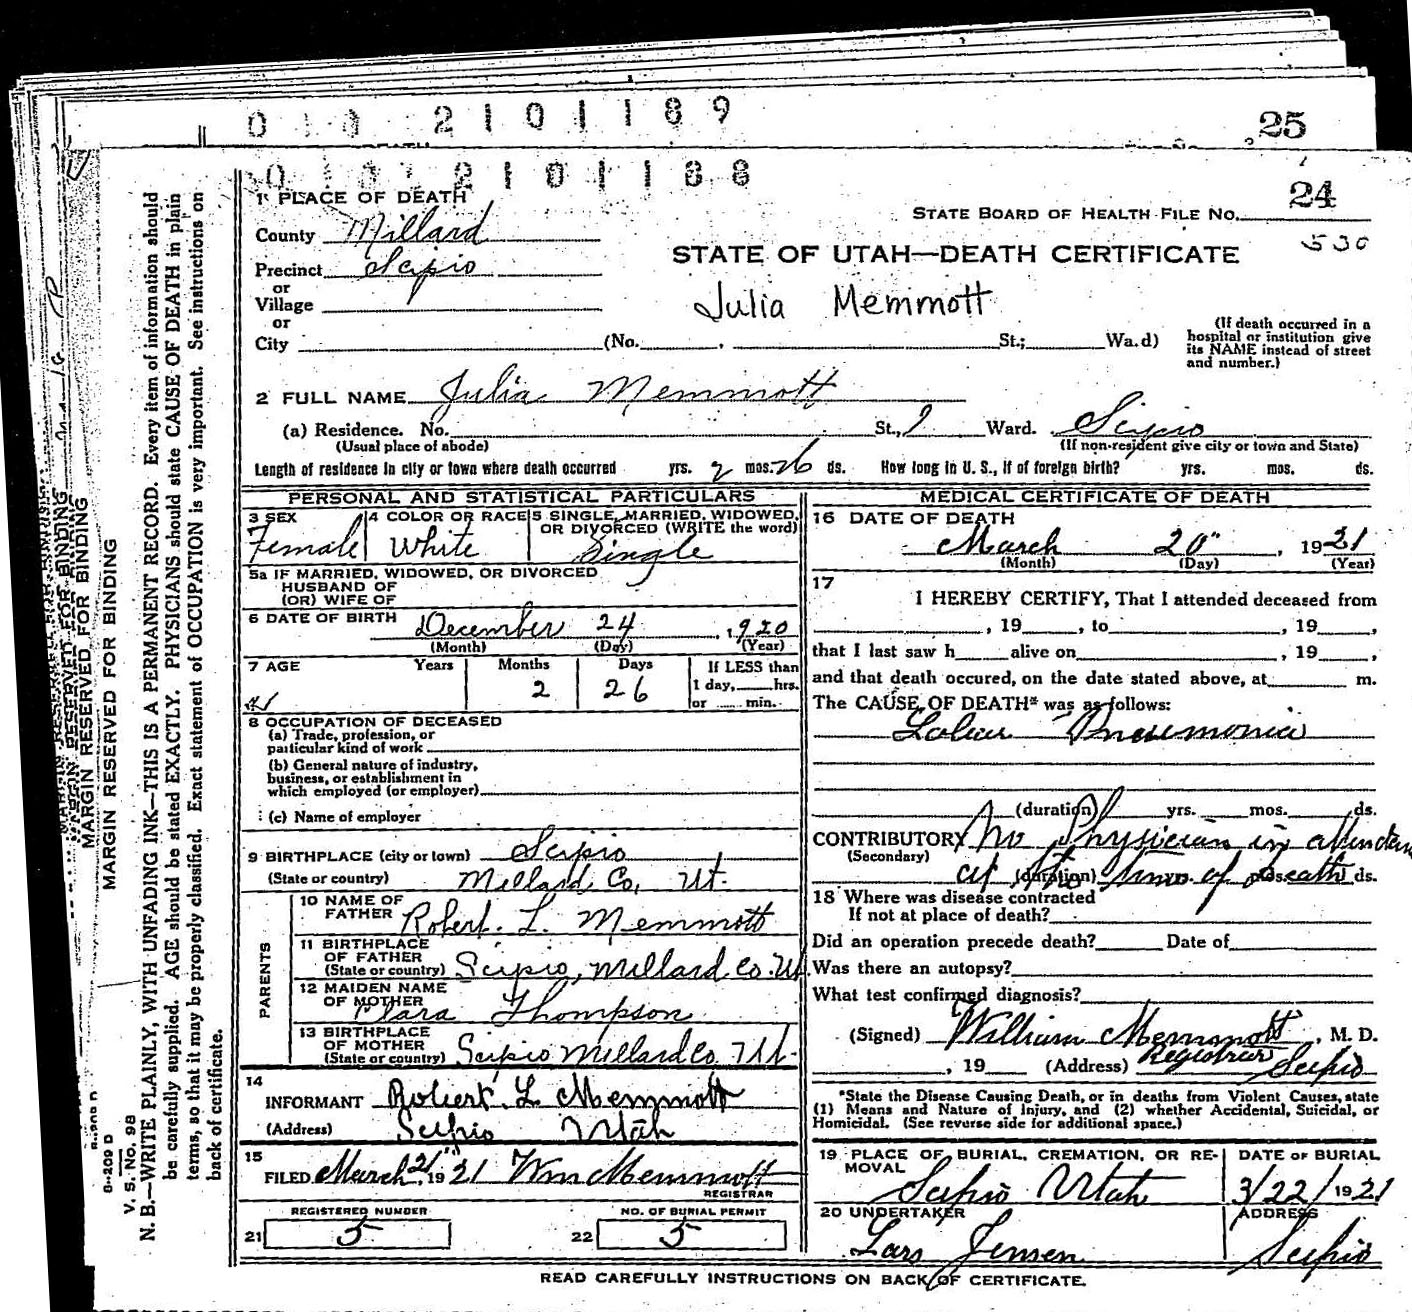 0 1 0 2 1 0 1 1 8 9
25
0 1 0 2 1 0 1 1 8 8
24
1 PLACE OF DEATH
STATE BOARD OF HEALTH FILE NO.
County Millard
530
STATE OF UTAH—DEATH CERTIFICATE
Precinct Scipio
or
Village
Julia Memmott
or
City (No. , St.; Wa.d)
(If death occurred in a
hospital or institution give
its NAME instead of street
and number.)
2 FULL NAME Julia Memmott
(a) Residence. No. St., Ward. Scipio
(Usual place of abode) (If non-resident give city or town and State)
Length of residence in city or town where death occurred yrs. 2 mos. 26 ds. How long in U. S., if of foreign birth? yrs. mos. ds.
PERSONAL AND STATISTICAL PARTICULARS
3 SEX
Female
4 COLOR OR RACE
White
5 SINGLE, MARRIED, WIDOWED,
OR DIVORCED (WRITE the word)
Single
5a IF MARRIED, WIDOWED, OR DIVORCED
HUSBAND OF
(OR) WIFE OF
6 DATE OF BIRTH December 24, 1920
(Month) (Day) (Year)
7 AGE Years Months Days If LESS than
2 26 1 day, hrs.
or min.
8 OCCUPATION OF DECEASED
(a) Trade, profession, or
particular kind of work
(b) General nature of industry,
business, or establishment in
which employed (or employer)
(c) Name of employer
9 BIRTHPLACE (city or town) Scipio
(State or country) Millard Co, Ut.
PARENTS
10 NAME OF
FATHER Robert L. Memmott
11 BIRTHPLACE
OF FATHER
(State or country) Scipio, Millard Co. Ut.
12 MAIDEN NAME
OF MOTHER
Clara Thompson
13 BIRTHPLACE
OF MOTHER
(State or country) Scipio Millard Co. Ut.
14
INFORMANT Robert L Memmott
(Address) Scipio Utah
15
FILED March 21", 19 21 Wm Memmott
REGISTRAR
REGISTERED NUMBER
21 5
NO. OF BURIAL PERMIT
22 5
MEDICAL CERTIFICATE OF DEATH
16 DATE OF DEATH
March 20", 1921
(Month) (Day) (Year)
17
I HEREBY CERTIFY, That I attended deceased from
, 19 , to , 19 ,
that I last saw h alive on , 19 ,
and that death occured, on the date stated above, at m.
The CAUSE OF DEATH* was as follows:
Lobar Pneumonia
(duration) yrs. mos. ds.
CONTRIBUTORY No Physician in
(Secondary)
at the time of death
(duration) yrs. mos. ds.
18 Where was disease contracted
If not at place of death?
Did an operation precede death? Date of
Was there an autopsy?
What test confirmed diagnosis?
(Signed) William Memmott, M. D.
Registrar
, 19 (Address) Scipio
*State the Disease Causing Death, or in deaths from Violent Causes, state
(1) Means and Nature of Injury, and (2) whether Accidental, Suicidal, or
Homicidal. (See reverse side for additional space.)
19 PLACE OF BURIAL, CREMATION, OR RE-
MOVAL
Scipio Utah
DATE OF BURIAL
3/22/1921
20 UNDERTAKER
Lars Jensen
ADDRESS
Scipio
READ CAREFULLY INSTRUCTIONS ON BACK OF CERTIFICATE.
MARGIN RESERVED FOR BINDING
MARGIN RESERVED FOR BINDING
8-209 D
8-409 D
V. S. No. 98
N. B.—WRITE PLAINLY, WITH UNFADING INK—THIS IS A PERMANENT RECORD. Every item of information should
be carefully supplied. AGE should be stated EXACTLY. PHYSICIANS should state CAUSE OF DEATH in plain
terms, so that it may be properly classified. Exact statement of OCCUPATION is very important. See instructions on
back of certificate.